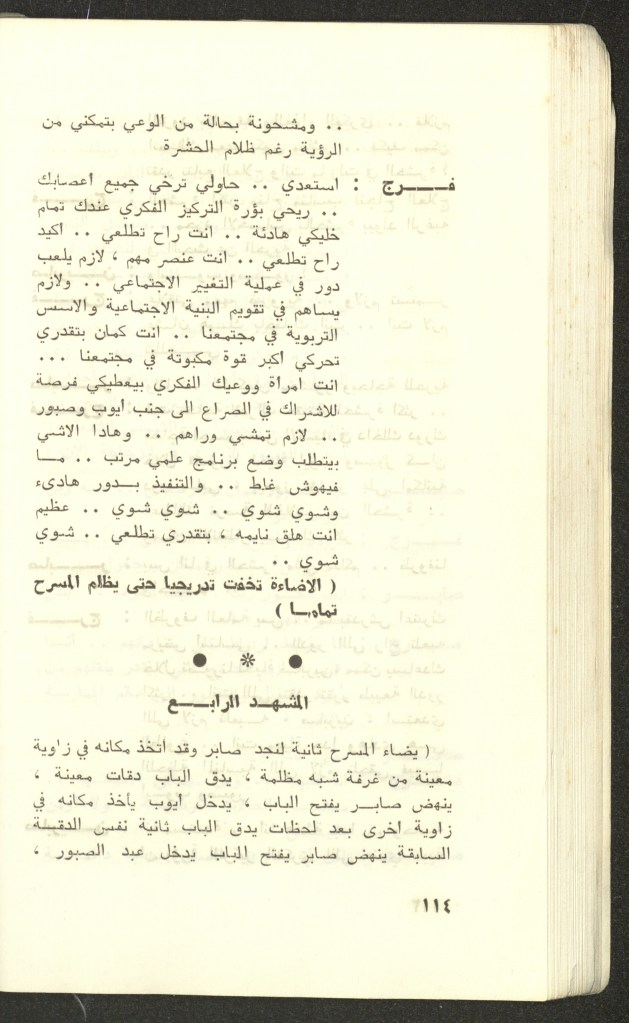 .. ومشحونة بحالة من الوعي بتمكني من
الرؤية رغم ظلام الحشرة
فـــــرج : استعدي .. حاولي ترخي جميع أعصابك
.. ريحي بؤرة التركيز الفكري عندك تمام
خليكي هادئة .. انت راح تطلعي .. أكيد
راح تطلعي .. انت عنصر مهم ، لازم يلعب
دور في عملية التغيير الاجتماعي .. ولازم
يساهم في تقويم البنية الاجتماعية والاسس
التربوية في مجتمعنا .. انت كمان بتقدري
تحركي أكبر قوة مكبوتة في مجتمعنا ...
انت امرأة ووعيك الفكري بيعطيكي فرصة
للاشراك في الصراع الى جنب أيوب وصبور
.. لازم تمشي وراهم .. وهادا الاشي
بيتطلب وضع برنامج علمي مرتب .. مــا
فيهوش غلط .. والتنفيذ بــدور هادىء
وشوي شوي .. شوي شوي .. عظيم
انت هلق نايمه ، بتقدري تطلعي .. شوي
شوي ..
( الاضاءة تخفت تدريجيا حتى يظلم المسرح
تمامــا )
● * ●
المشهــد الرابــــع
( يضاء المسرح ثانية لنجد صابر وقد اتخذ مكانه في زاوية
معينة من غرفة شبه مظلمة ، يدق الباب دقات معينة ،
ينهض صابــر يفتح الباب ، يدخل أيوب يأخذ مكانه في
زاوية اخرى بعد لحظات يدق الباب ثانية نفس الدقــة
السابقة ينهض صابر يفتح الباب يدخل عبد الصبور ،
١١٤